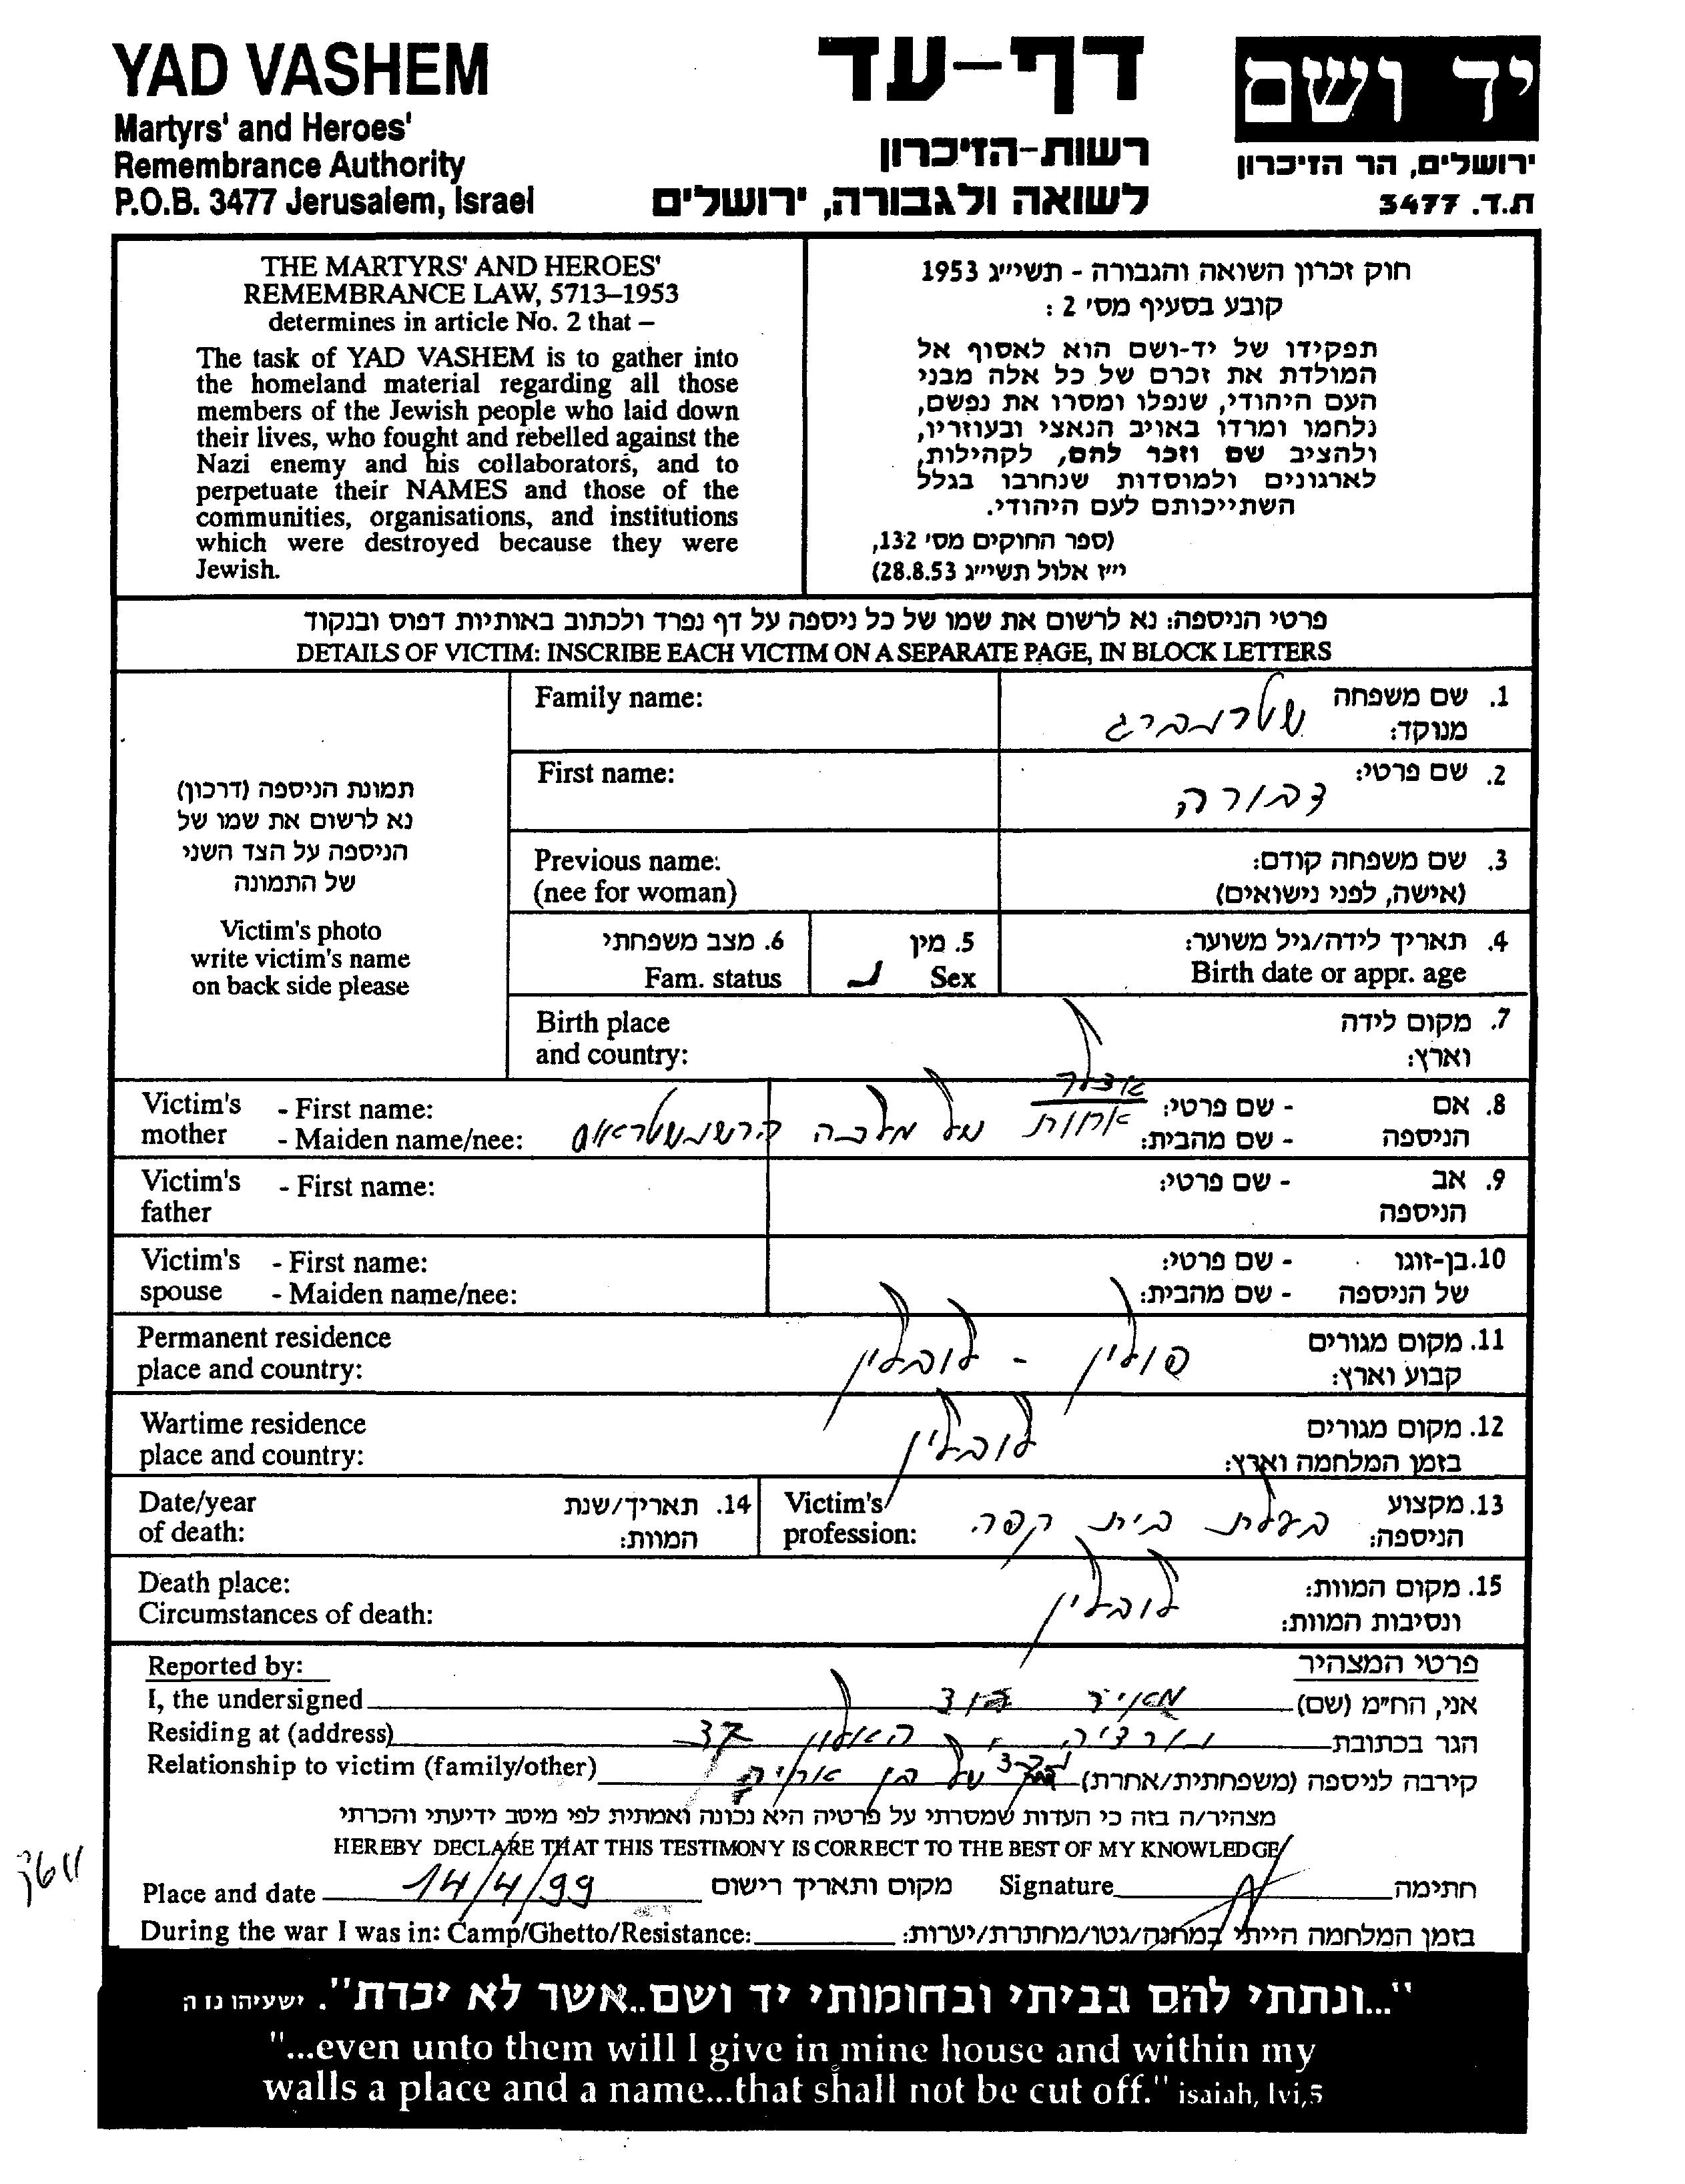 YAD VASHEM
Martyrs' and Heroes'
Remembrance Authority
P.O.B. 3477 Jerusalem, Israel
דף-עד
רשות-הזיכרון
לשואה ולגבורה, ירושלים
יד ושם
ירושלים, הר הזיכרון
ת.ד. 3477
THE MARTYRS' AND HEROES'
REMEMBRANCE LAW, 5713–1953
determines in article No. 2 that –
The task of YAD VASHEM is to gather into
the homeland material regarding all those
members of the Jewish people who laid down
their lives, who fought and rebelled against the
Nazi enemy and his collaborators, and to
perpetuate their NAMES and those of the
communities, organisations, and institutions
which were destroyed because they were
Jewish.
חוק זכרון השואה והגבורה - תשי״ג 1953
קובע בסעיף מס' 2 :
תפקידו של יד-ושם הוא לאסוף אל
המולדת את זכרם של כל אלה מבני
העם היהודי, שנפלו ומסרו את נפשם,
נלחמו ומרדו באויב הנאצי ובעוזריו,
ולהציב שם וזכר להם, לקהילות,
לארגונים ולמוסדות שנחרבו בגלל
השתייכותם לעם היהודי.
(ספר החוקים מס' 132,
י״ז אלול תשי״ג 28.8.53)
פרטי הניספה: נא לרשום את שמו של כל ניספה על דף נפרד ולכתוב באותיות דפוס ובנקוד
DETAILS OF VICTIM: INSCRIBE EACH VICTIM ON A SEPARATE PAGE, IN BLOCK LETTERS
תמונת הניספה (דרכון)
נא לרשום את שמו של
הניספה על הצד השני
של התמונה
Victim's photo
write victim's name
on back side please
Family name:
1. שם משפחה
מנוקד:
שטרנברג
First name:
2. שם פרטי:
דבורה
Previous name:
(nee for woman)
3. שם משפחה קודם:
(אישה, לפני נישואים)
6. מצב משפחתי
Fam. status
5. מין
Sex נ
4. תאריך לידה/גיל משוער:
Birth date or appr. age
Birth place
and country:
7. מקום לידה
וארץ:
Victim's mother - First name:
- Maiden name/nee:
8. אם הניספה - שם פרטי:
- שם מהבית:
אחות של מלכה
Victim's father - First name:
9. אב הניספה - שם פרטי:
Victim's spouse - First name:
- Maiden name/nee:
10. בן-זוגו של הניספה - שם פרטי:
- שם מהבית:
Permanent residence
place and country:
11. מקום מגורים
קבוע וארץ:
פולין - לובלין
Wartime residence
place and country:
12. מקום מגורים
בזמן המלחמה וארץ:
לובלין
Date/year
of death:
14. תאריך/שנת
המוות:
Victim's
profession:
13. מקצוע
הניספה:
בעלת בית קפה.
Death place:
Circumstances of death:
15. מקום המוות:
ונסיבות המוות:
לובלין
Reported by:
פרטי המצהיר
I, the undersigned מאיר אני, הח״מ (שם)
Residing at (address) האלון הגר בכתובת
Relationship to victim (family/other) נכד של בן אחיה קירבה לניספה (משפחתית/אחרת)
מצהיר/ה בזה כי העדות שמסרתי על פרטיה היא נכונה ואמתית לפי מיטב ידיעתי והכרתי
HEREBY DECLARE THAT THIS TESTIMONY IS CORRECT TO THE BEST OF MY KNOWLEDGE
Place and date 14/4/99 מקום ותאריך רישום Signature חתימה
During the war I was in: Camp/Ghetto/Resistance: בזמן המלחמה הייתי במחנה/גטו/מחתרת/יערות:
"...ונתתי להם בביתי ובחומותי יד ושם..אשר לא יכרת". ישעיהו נו ה
"...even unto them will I give in mine house and within my
walls a place and a name...that shall not be cut off." isaiah, lvi,5